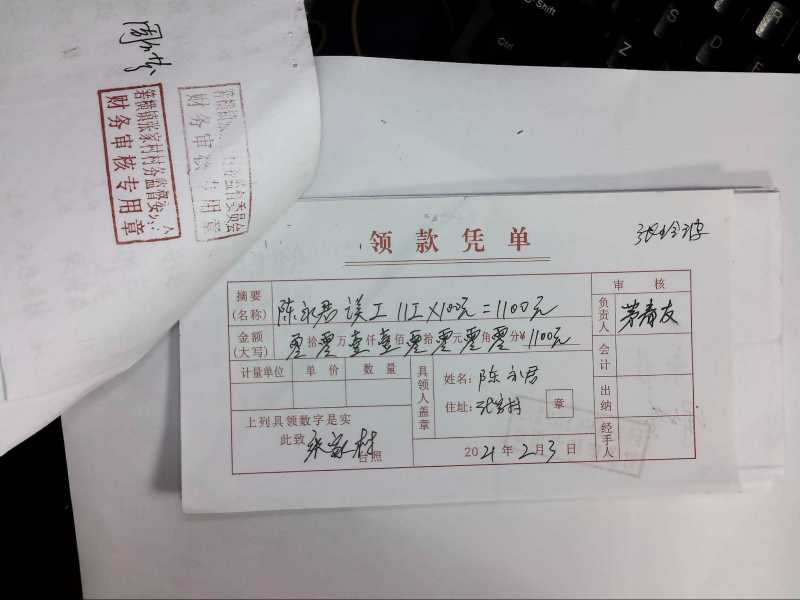 财务审核专用章
财务审核专用章
领款凭单
摘要
(名称)
陈永君 误工 11工×100元=1100元
金额
(大写)
零拾零万壹仟壹佰零拾零元零角零分¥1100元
计量单位 单价 数量
上列具领数字是实
此致
张家村
台照
具领人盖章
姓名: 陈永君
住址: 张家村
章
2021年2月3日
审核
负责人
茅春友
会计
出纳
经手人
Shift
Ctrl
S
D
Z